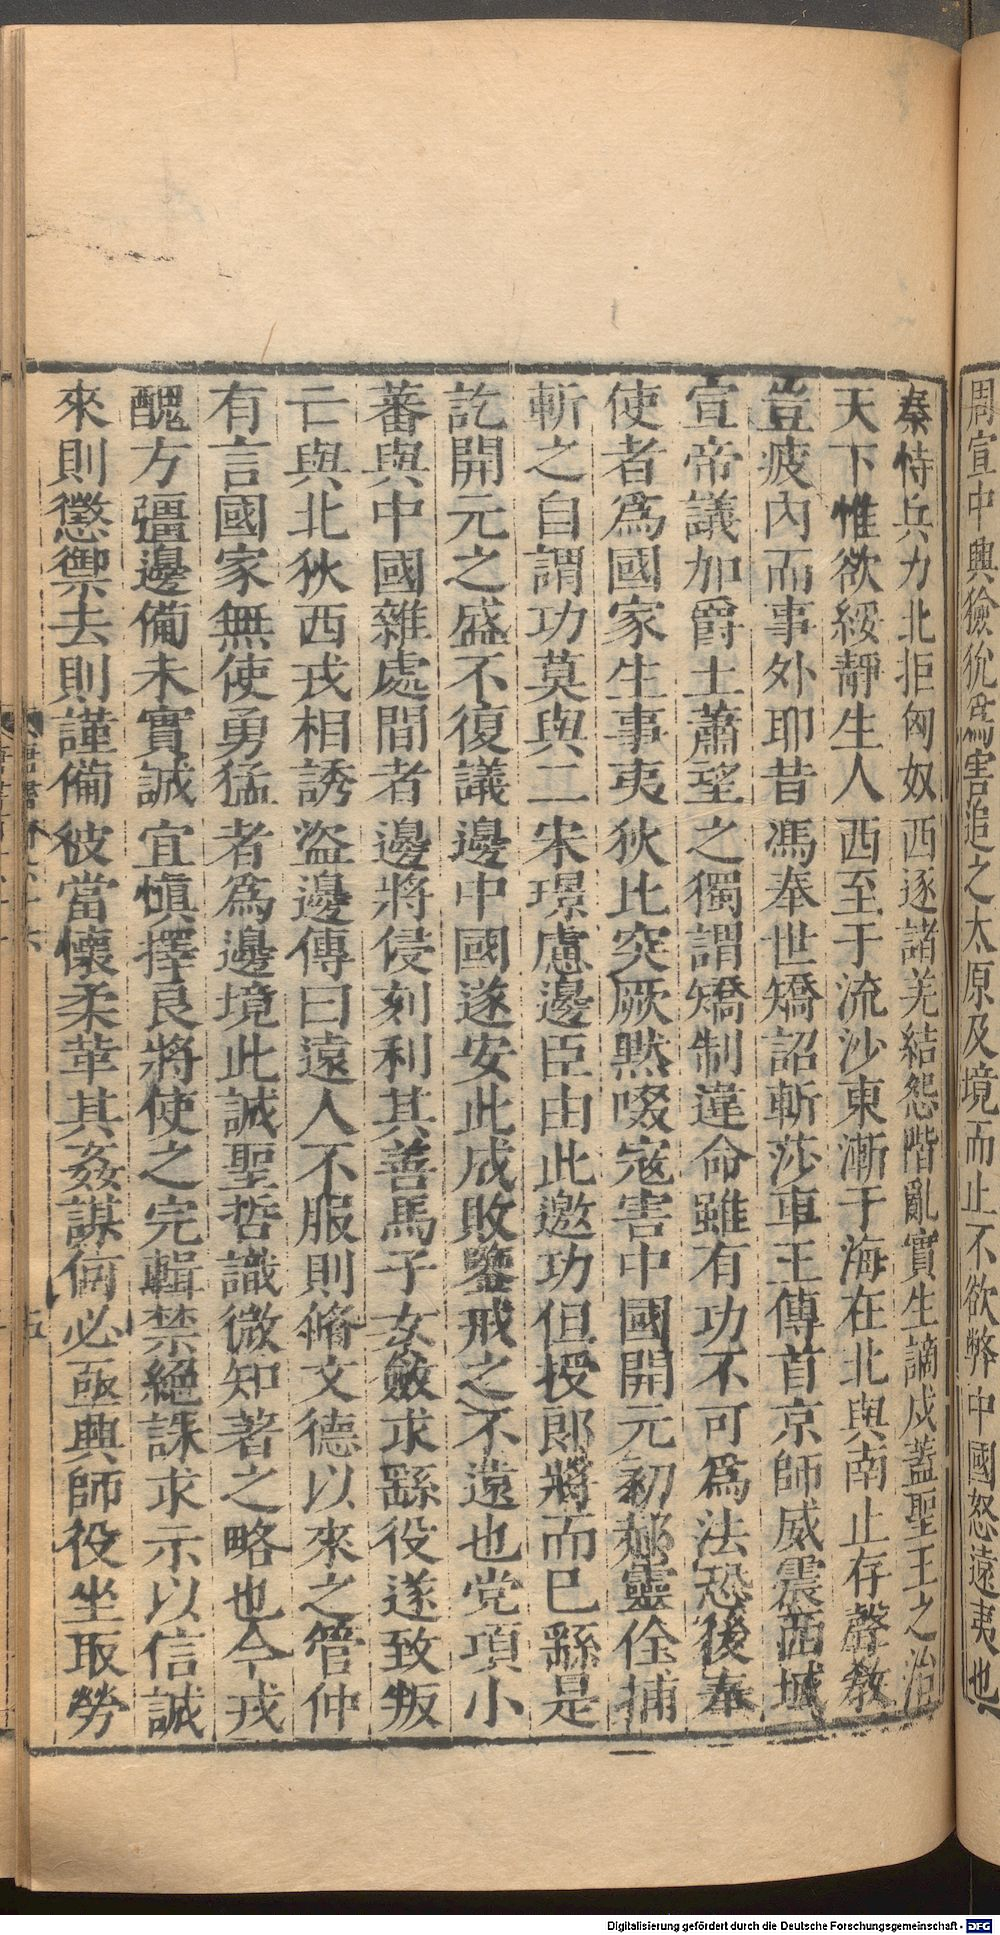 周宣中興獫狁爲害追之太原及境而止不欲弊中國怒遠夷也
秦恃兵力北拒匈奴西逐諸羌結怨階亂實生謫戍蓋聖王之治
天下惟欲綏靜生人西至于流沙東漸于海在北與南止存聲教
豈疲內而事外耶昔馮奉世矯詔斬莎車王傳首京師威震西域
宣帝議加爵土蕭望之獨謂矯制違命雖有功不可爲法恐後奉
使者爲國家生事夷狄比突厥黙啜寇害中國開元初郝靈佺捕
斬之自謂功莫與二宋璟慮邊臣由此邀功但授郎將而已繇是
訖開元之盛不復議邊中國遂安此成敗鑒戒之不遠也党項小
蕃與中國雜處間者邊將侵刻利其善馬子女斂求繇役遂致叛
亡與北狄西戎相誘盜邊傳曰遠人不服則脩文德以來之管仲
有言國家無使勇猛者爲邊境此誠聖哲識微知著之略也今戎
醜方彊邊備未實誠宜慎擇良將使之完輯禁絕誅求示以信誠
來則懲禦去則謹備彼當懷柔革其姦謀何必亟興師役坐取勞
唐書
五
Digitalisierung gefördert durch die Deutsche Forschungsgemeinschaft - DFG